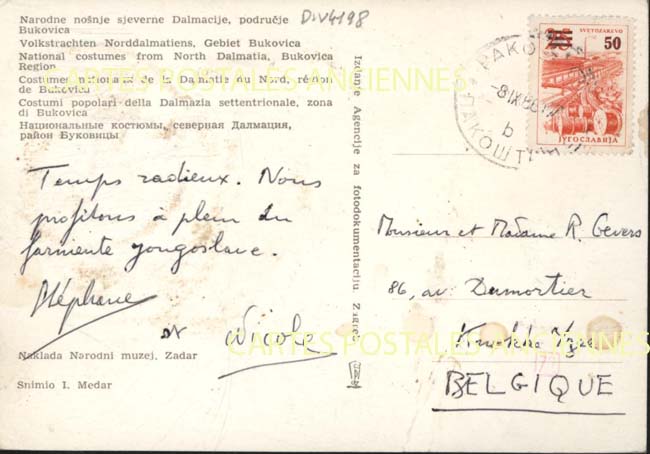 DIV4198
Narodne nošnje sjeverne Dalmacije, područje
Bukovica
Volkstrachten Norddalmatiens, Gebiet Bukovica
National costumes from North Dalmatia, Bukovica
Region
Costumes nationaux de la Dalmatie du Nord, région
de Bukovica
Costumi popolari della Dalmazia settentrionale, zona
di Bukovica
Национальные костюмы, северная Далмация,
район Буковицы
CARTES POSTALES ANCIENNES
Temps radieux. Nous
profitons à plein du
farniente yougoslave.
Stéphane
et Nicole
Naklada Narodni muzej, Zadar
Snimio I. Medar
Izdanje Agencije za fotodokumentaciju Zagreb
SVETOZAREVO
50
ЈУГОСЛАВИЈА
ПАКОШТАНЕ
b
Monsieur et Madame R. Gevers
86, av. Dumortier
Knokke
BELGIQUE
CARTES POSTALES ANCIENNES